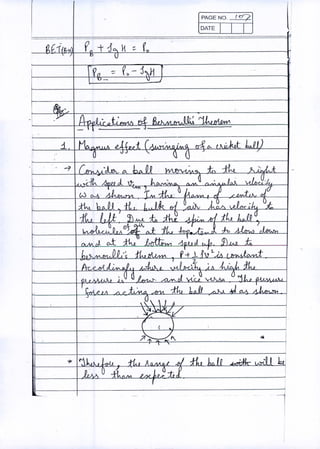 PAGE NO. 107
DATE
BET(B→) P_B + ρgH = P₀
P_B = P₀ - ρgH
Applications of Bernoulli's Theorem
1. Magnus effect (swinging of a cricket ball)
→ Consider a ball moving to the right
with speed V, having an angular velocity
ω as shown. In the frame of center of
the ball, the bulk of air has velocity to
the left. Due to the spin of the ball,
molecules of air at the top tend to slow down
and at the bottom speed up. Due to
bernoulli's theorem, P + ½ρv² is constant.
Accordingly where velocity is high the
pressure is low and vice versa. The pressure
forces acting on the ball are as shown.
* Therefore, the range of the ball will be
less than expected.